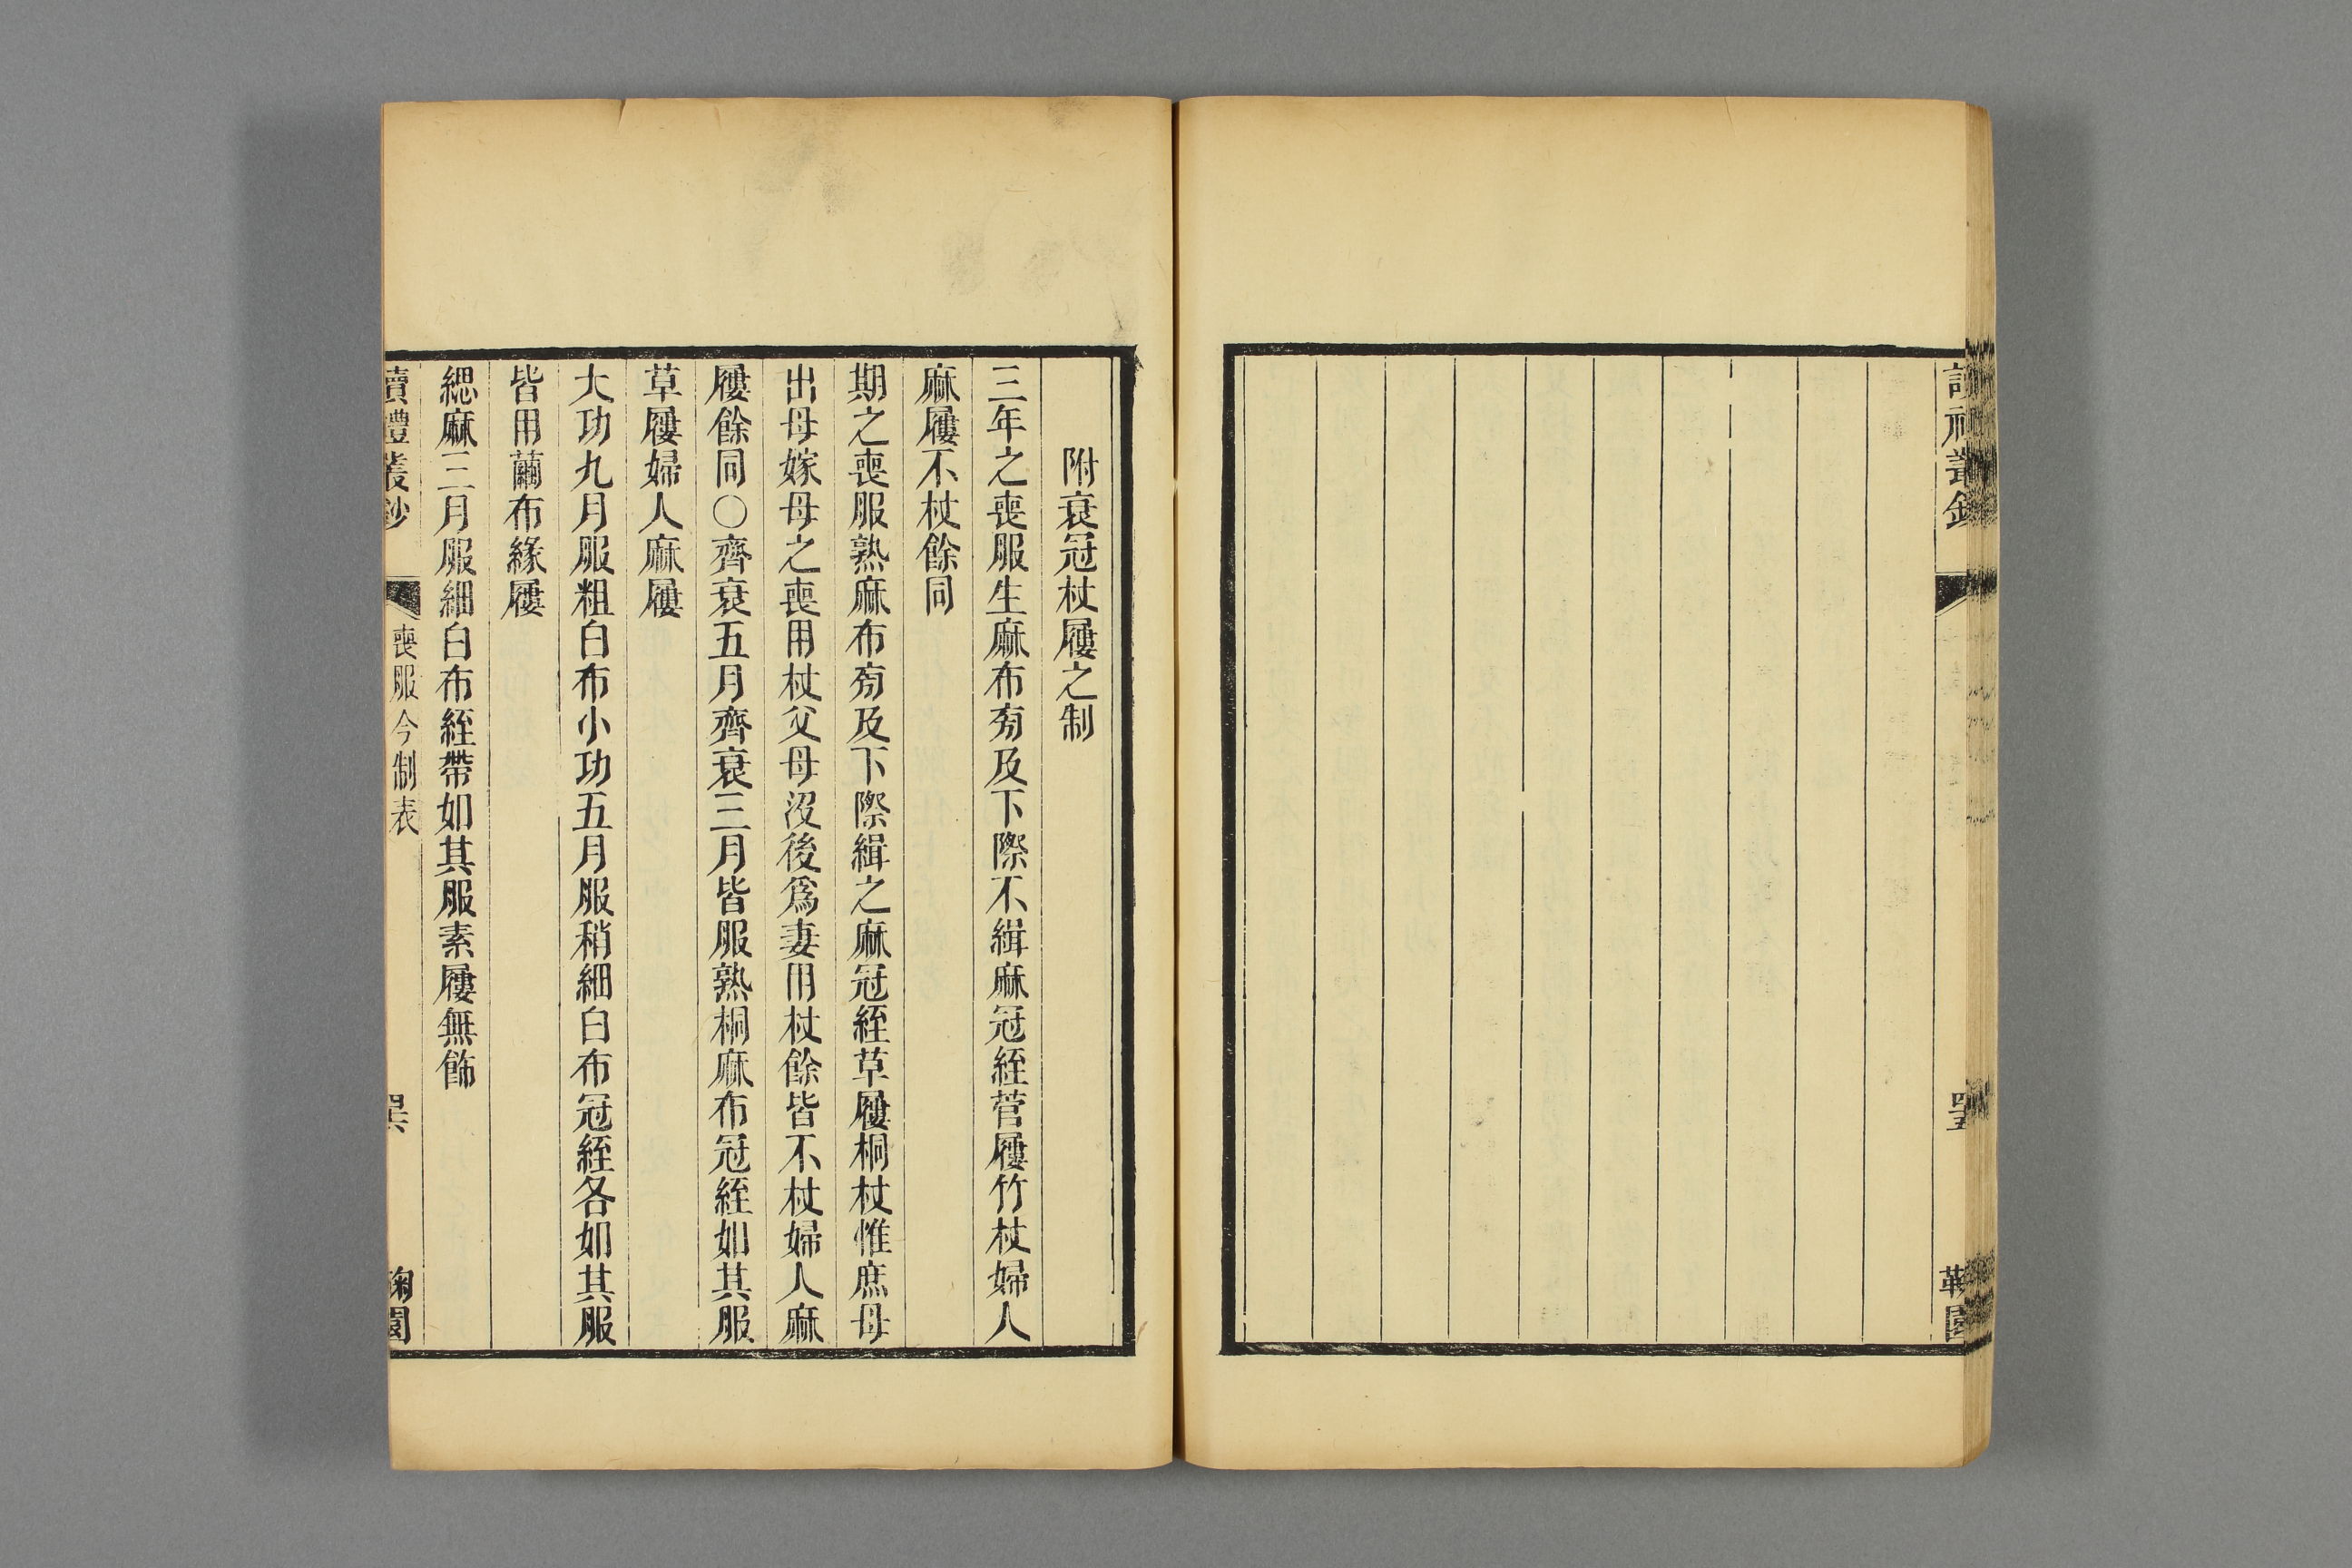 叢
附衰冠杖屨之制
三年之喪服生麻布旁及下際不緝麻冠絰菅屨竹杖婦人
麻屨不杖餘同
期之喪服熟麻布旁及下際緝之麻冠絰草屨桐杖惟庶母
出母嫁母之喪用杖父母沒後爲妻用杖餘皆不杖婦人麻
屨餘同○齊衰五月齊衰三月皆服熟桐麻布冠絰如其服
草屨婦人麻屨
大功九月服粗白布小功五月服稍細白布冠絰各如其服
皆用繭布緣屨
緦麻三月服細白布絰帶如其服素屨無飾
讀禮叢鈔
喪服今制表